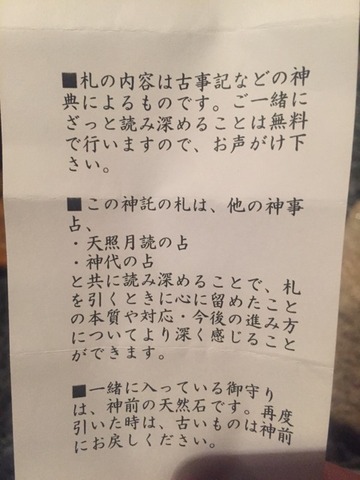 ■札の内容は古事記などの神
典によるものです。ご一緒に
ざっと読み深めることは無料
で行いますので、お声がけ下
さい。
■この神託の札は、他の神事
占、
・天照月読の占
・神代の占
と共に読み深めることで、札
を引くときに心に留めたこと
の本質や対応・今後の進み方
についてより深く感じること
ができます。
■一緒に入っている御守り
は、神前の天然石です。再度
引いた時は、古いものは神前
にお戻しください。